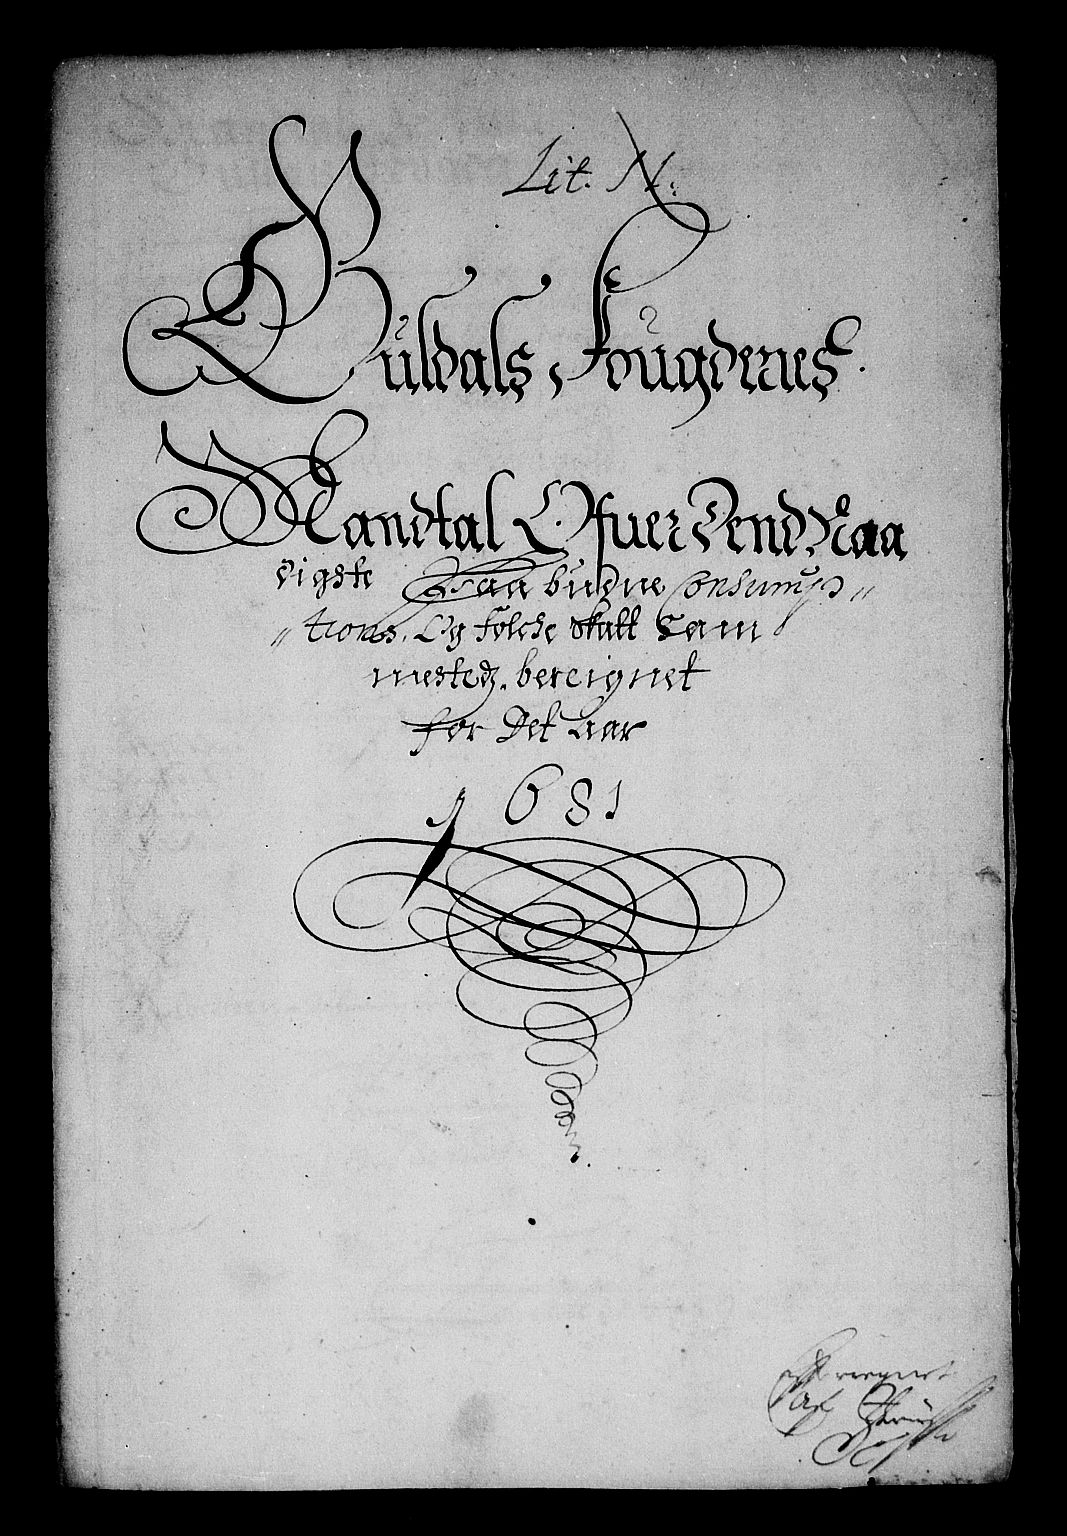 Lit. N:
Guldals Fougderies
Mandtal Ofuer Dend Naa
digste Paa budne Consump„
„tions. Og folche skatt Sam
mesteds. bereignet
for Det Aar
1681